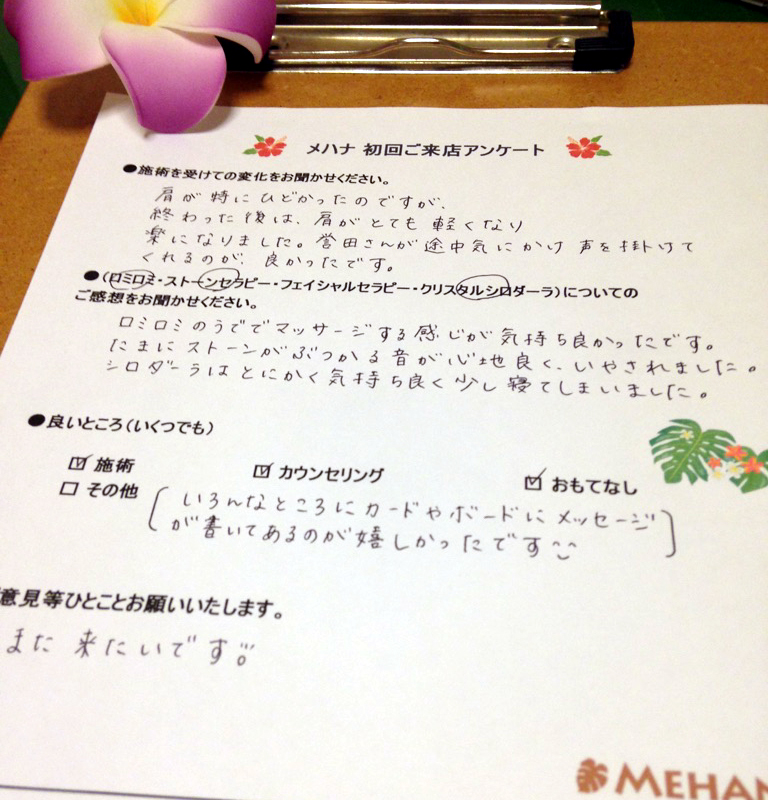 メハナ 初回ご来店アンケート
●施術を受けての変化をお聞かせください。
肩が特にひどかったのですが、
終わった後は、肩がとても軽くなり
楽になりました。誉田さんが途中気にかけ声を掛けて
くれるのが、良かったです。
●(ロミロミ・ストーンセラピー・フェイシャルセラピー・クリスタルシロダーラ)についての
ご感想をお聞かせください。
ロミロミのうででマッサージする感じが気持ち良かったです。
たまにストーンがぶつかる音が心地良く、いやされました。
シロダーラはとにかく気持ち良く少し寝てしまいました。
●良いところ(いくつでも)
☑ 施術 ☑ カウンセリング ☑ おもてなし
☐ その他 (いろんなところにカードやボードにメッセージ
が書いてあるのが嬉しかったです)
意見等ひとことお願いいたします。
また来たいです
MEHAN